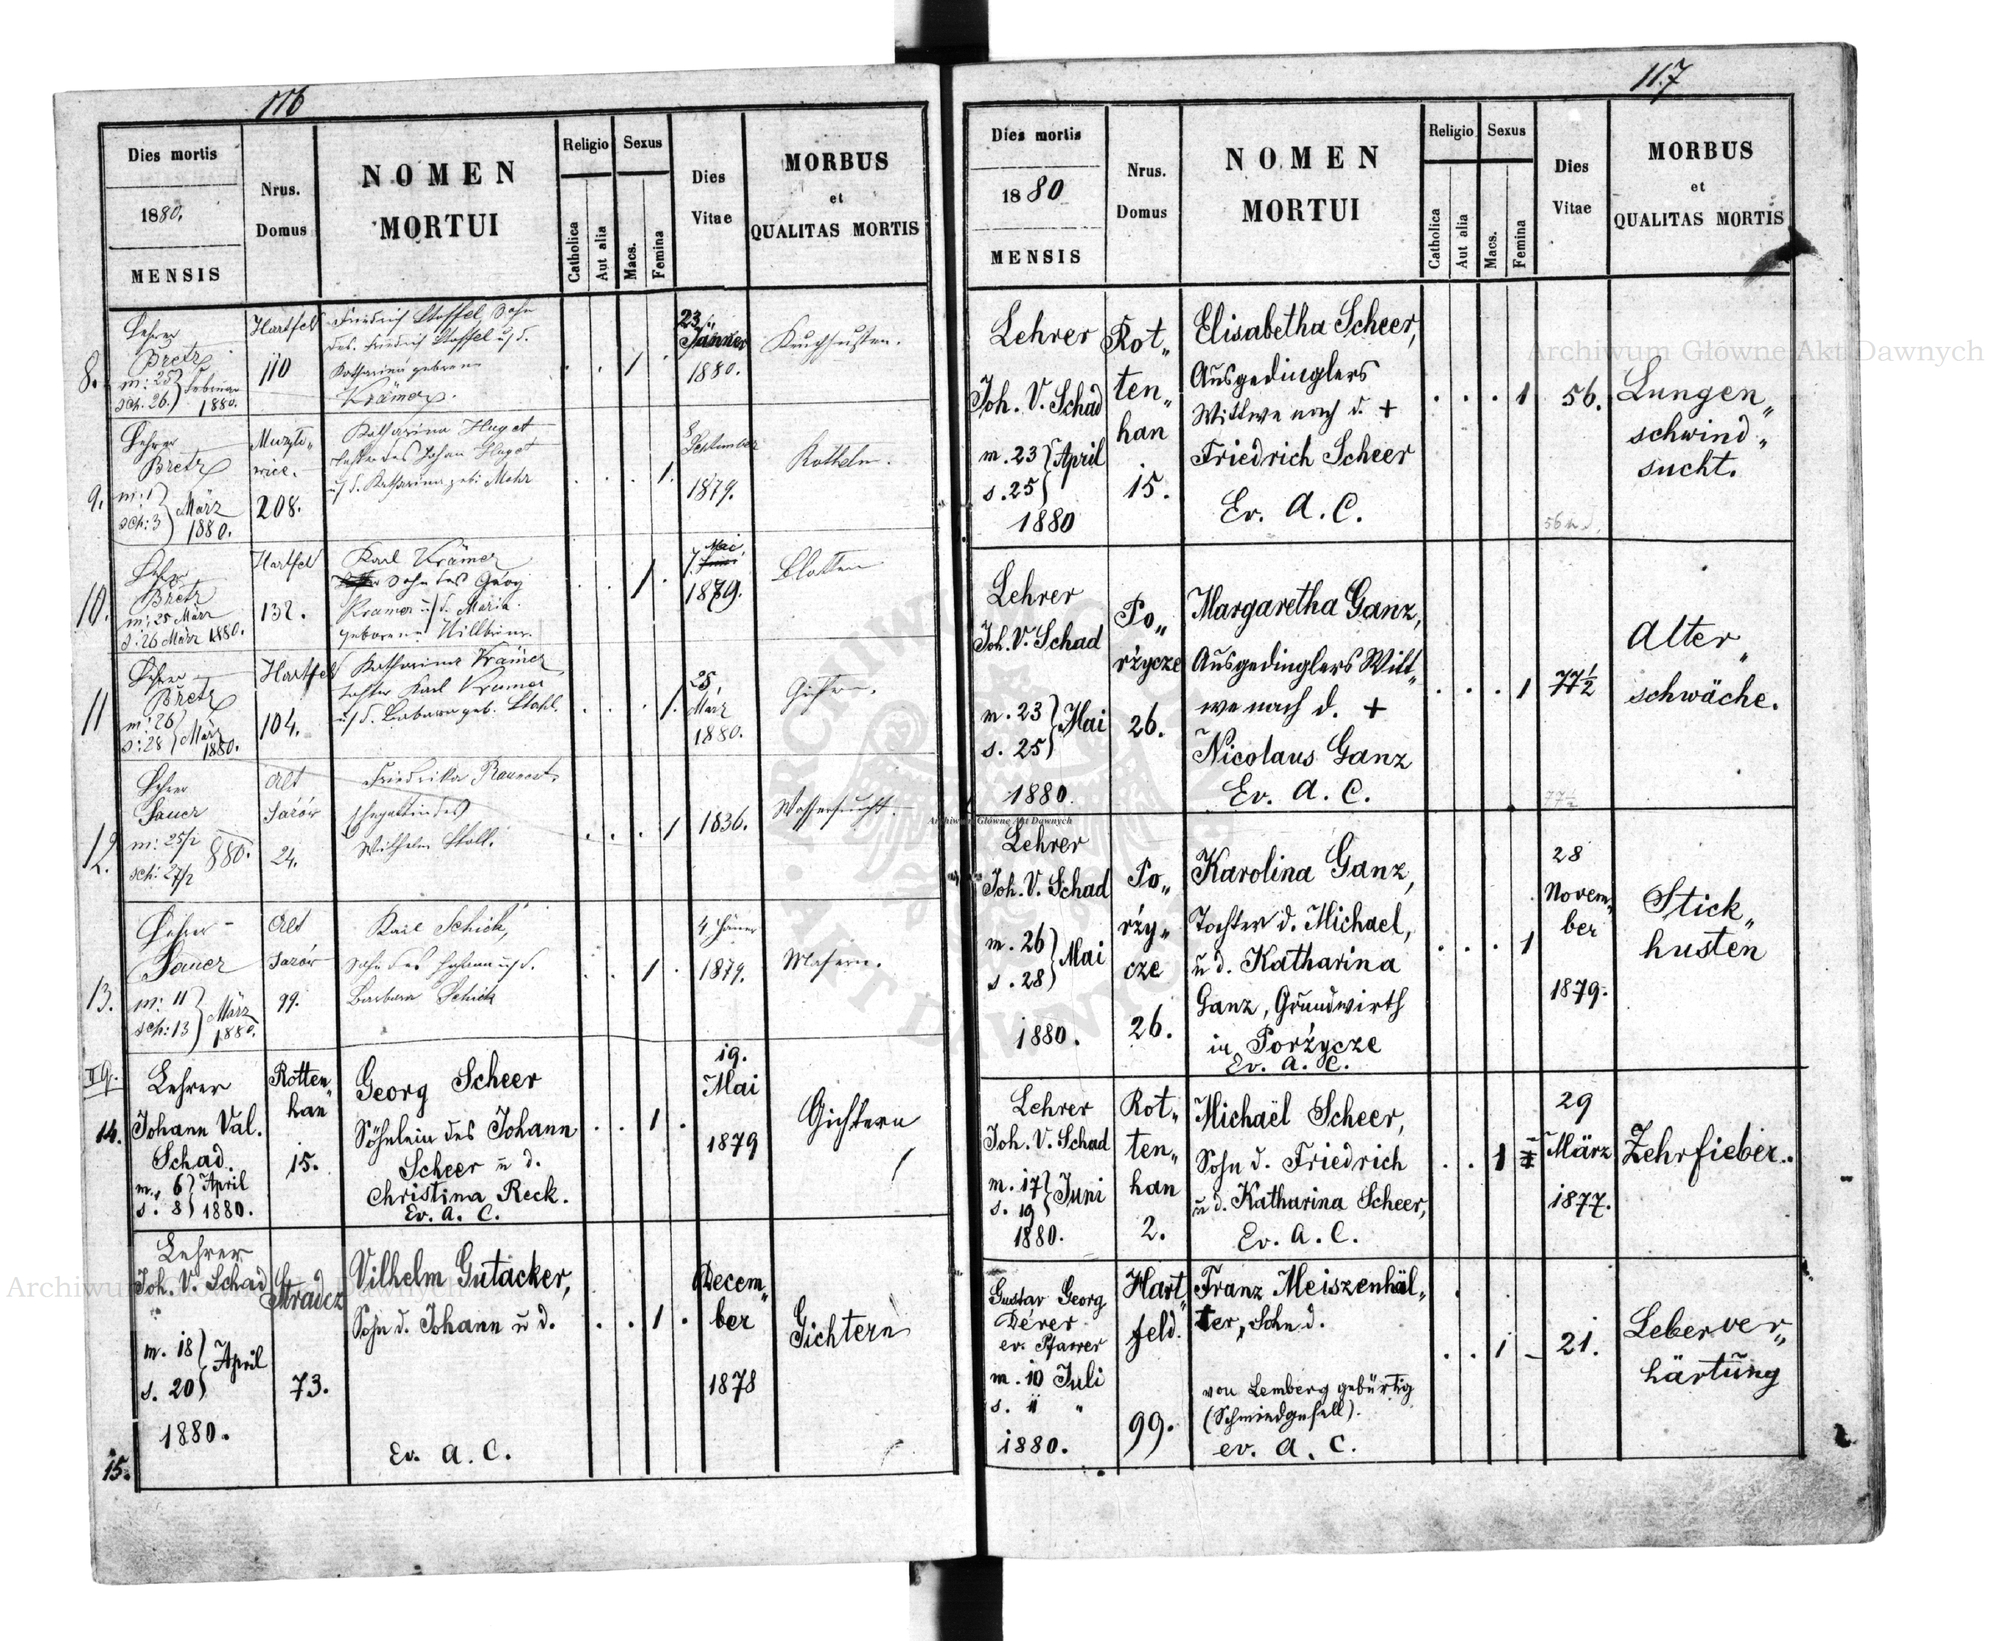 116
Dies mortis
1880.
MENSIS
Nrus.
Domus
NOMEN
MORTUI
Religio
Catholica
Aut alia
Sexus
Macs.
Femina
Dies
Vitae
MORBUS
et
QUALITAS MORTIS
8.
Lehrer
Bretz
m: 25
sch. 26.
Februar
1880.
Hartfeld
110
Friedrich Stoffel, Sohn
des Friedrich Stoffel u. d.
Katharina geborene
Krämer.
1
23
Jänner
1880.
9.
Lehrer
Bretz
m: 1
sch: 3
März
1880.
208.
Katharina Huget
Tochter des Johan Huget
u. d. Katharina geb: Mohr
1.
8
September
1879.
Rotteln.
10.
Lehrer
Bretz
m: 25 März
s: 26 März 1880.
Hartfeld
132.
Karl Krämer
Sohn des Georg
Kramer u. d. Maria
geborene
1
7. Mai
1879.
Blattern
11
Lehrer
Bretz
m: 26
s: 28
März
1880.
Hartfeld
104.
Katharina Krämer
Tochter Karl Kramer
u. d. Barbara geb. Stahl
1.
25.
März
1880.
12.
Lehrer
Sauer
m: 25/2
sch: 27/2
880.
Alt
Jazów
24.
Friedrika
Ehegattin des
Wilhelm Stoll.
1
1836.
Wassersucht.
13.
Lehrer
Sauer
m: 11
sch: 13
März
1880.
Alt
Jazów
99.
Karl Schick,
Sohn des Johann u. d.
Barbara Schick
1
4 Jäner
1879.
Masern.
II 9.
14.
Lehrer
Johann Val.
Schad.
m. 6
s. 8
April
1880.
Rotten„
han
15.
Georg Scheer
Söhnlein des Johann
Scheer u d.
Christina Reck.
Ev. A. C.
1
19.
Mai
1879
Gichtern
15.
Lehrer
Joh. V. Schad
m. 18
s. 20
April
1880.
Stradcz
73.
Vilhelm Gutacker,
Sohn d. Johann u d.
Ev. A. C.
1
Decem„
ber
1878
Gichtern
117
Dies mortis
1880
MENSIS
Nrus.
Domus
NOMEN
MORTUI
Religio
Catholica
Aut alia
Sexus
Macs.
Femina
Dies
Vitae
MORBUS
et
QUALITAS MORTIS
Lehrer
Joh. V. Schad
m. 23
s. 25
April
1880
Rot„
ten„
han
15.
Elisabetha Scheer,
Ausgedinglers
Wittwe nach d. +
Friedrich Scheer
Ev. A. C.
1
56.
Lungen„
schwind„
sucht.
Lehrer
Joh. V. Schad
m. 23
s. 25
Mai
1880.
Po„
rżycze
26.
Margaretha Ganz,
Ausgedinglers Witt„
we nach d. +
Nicolaus Ganz
Ev. A. C.
1
77½
77½
Alter„
schwäche.
Lehrer
Joh. V. Schad
m. 26
s. 28
Mai
1880.
Po„
rży„
cze
26.
Karolina Ganz,
Tochter d. Michael,
u d. Katharina
Ganz, Grundwirth
in Porżycze
Ev. A. C.
1
28
Novem„
ber
1879.
Stick„
husten
Lehrer
Joh. V. Schad
m. 17
s. 19
Juni
1880.
Rot„
ten„
han
2.
Michaël Scheer,
Sohn d. Friedrich
u d. Katharina Scheer,
Ev. A. C.
1
29
März
1877.
Zehrfieber.
Gustav Georg
Dérer
ev. Pfarrer
m. 10 Juli
s. 11 „
1880.
Hart„
feld.
99.
Franz Meiszenhäl„
ter, Sohn d.
von Lemberg gebürtig
(Schmiedgesell).
ev. A. C.
1
21.
Leberver„
härtung
Archiwum Główne Akt Dawnych
Archiwum Główne Akt Dawnych
Archiwum Główne Akt Dawnych